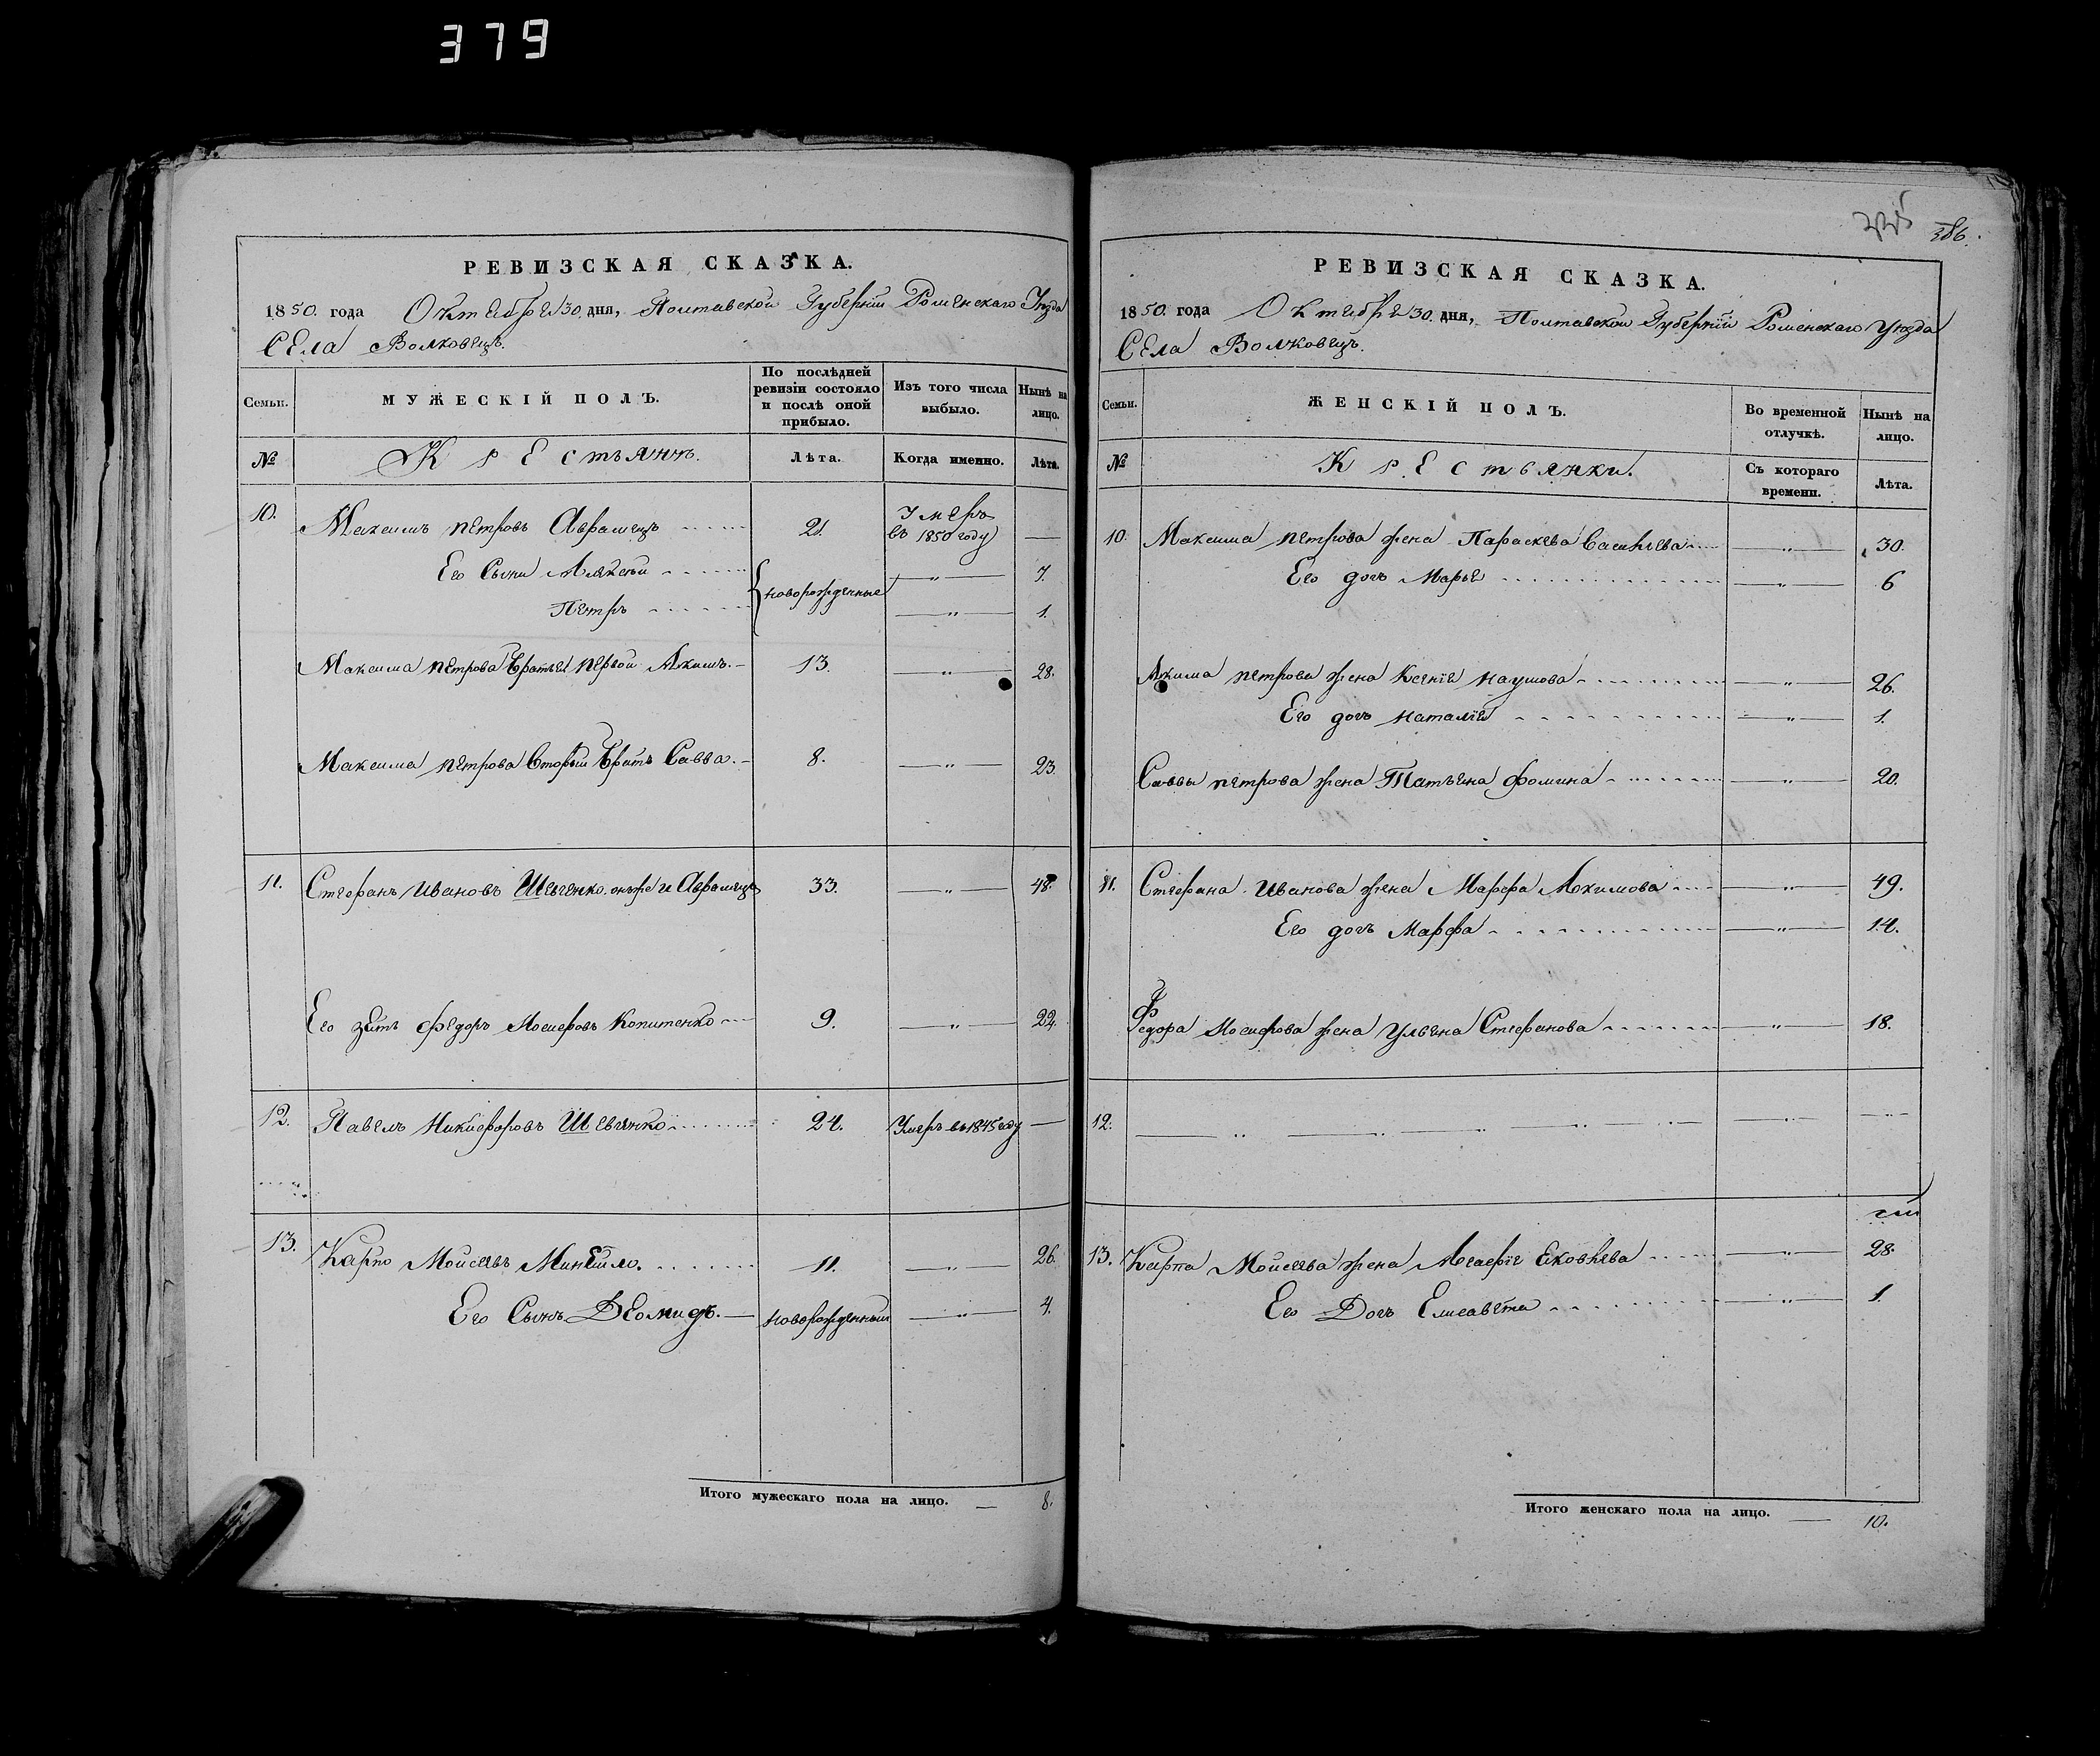 379
РЕВИЗСКАЯ СКАЗКА.
1850. года Октября 30. дня, Полтавской Губерніи Роменскаго Уѣзда
Села Волковецъ.
Семьи.
МУЖЕСКІЙ ПОЛЪ.
По послѣдней ревизіи состояло и послѣ оной прибыло.
Изъ того числа выбыло.
Нынѣ на лицо.
№
Крестьянъ.
Лѣта.
Когда именно.
Лѣта.
10. Максимъ Петровъ Аврамецъ 21. Умеръ въ 1850 году —
Его Сыни Алексѣй новорожденные — " — 7.
Петръ — " — 1.
Максима Петрова Братья Первой Якимъ. 13. — " — 28.
Максима Петрова Вторый Братъ Савва. 8. — " — 23.
11. Стефанъ Ивановъ Шевченко онъ же и Аврамецъ 33. — " — 48.
Его зять Федоръ Іосифовъ Копитенко 9. — " — 22.
12. Павелъ Никифоровъ Шевченко 24. Умеръ въ 1845 году —
13. Карпо Мойсеевъ Минѣйло. 11. — " — 26.
Его Сынъ Деомидъ. новорожденный — " — 4.
Итого мужескаго пола на лицо. — 8.
386.
РЕВИЗСКАЯ СКАЗКА.
1850. года Октября 30. дня, Полтавской Губерніи Роменскаго Уѣзда
Села Волковецъ.
Семьи.
ЖЕНСКІЙ ПОЛЪ.
Во временной отлучкѣ.
Нынѣ на лицо.
№
Крестьянки.
Съ котораго времени.
Лѣта.
10. Максима Петрова жена Параскева Васильева — " — 30.
Его дочь Марья — " — 6
Якима Петрова жена Ксенія Наумова — " — 26.
Его дочь Наталія — " — 1.
Саввы Петрова жена Татьяна Фомина — " — 20.
11. Стефана Иванова жена Марфа Якимова — " — 49.
Его дочь Марфа — " — 14.
Федора Іосифова жена Ульяна Стефанова — " — 18.
12. — " — " — " — " —
13. Карпа Мойсеева жена Агафія Яковлева — " — 28.
Его Дочь Елисавета — " — 1.
Итого женскаго пола на лицо. — 10.